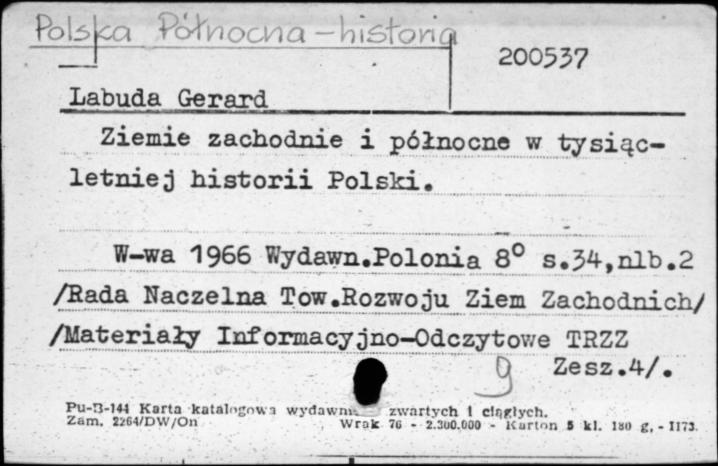 Polska Północna - historia
200537
Labuda Gerard
Ziemie zachodnie i północne w tysiąc-
letniej historii Polski.
W-wa 1966 Wydawn.Polonia 8° s.34,nlb.2
/Rada Naczelna Tow.Rozwoju Ziem Zachodnich/
/Materiały Informacyjno-Odczytowe TRZZ
Zesz.4/.
g
Pu-B-144 Karta katalogowa zwartych i ciągłych.
Zam. 2264/DW/On Wrak 76 - 2.300.000 - Karton 5 kl. 180 g, - 1173.